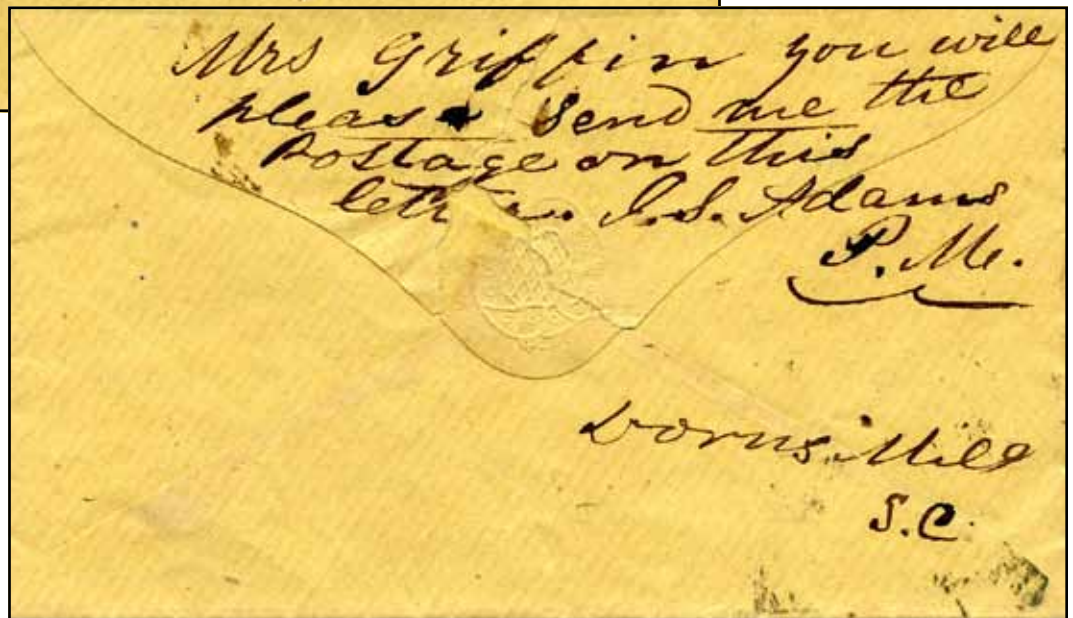 Mrs Griffin you will
please send me the
Postage on this
letter. J.S. Adams
P.M.
Dorns Mill
S.C.